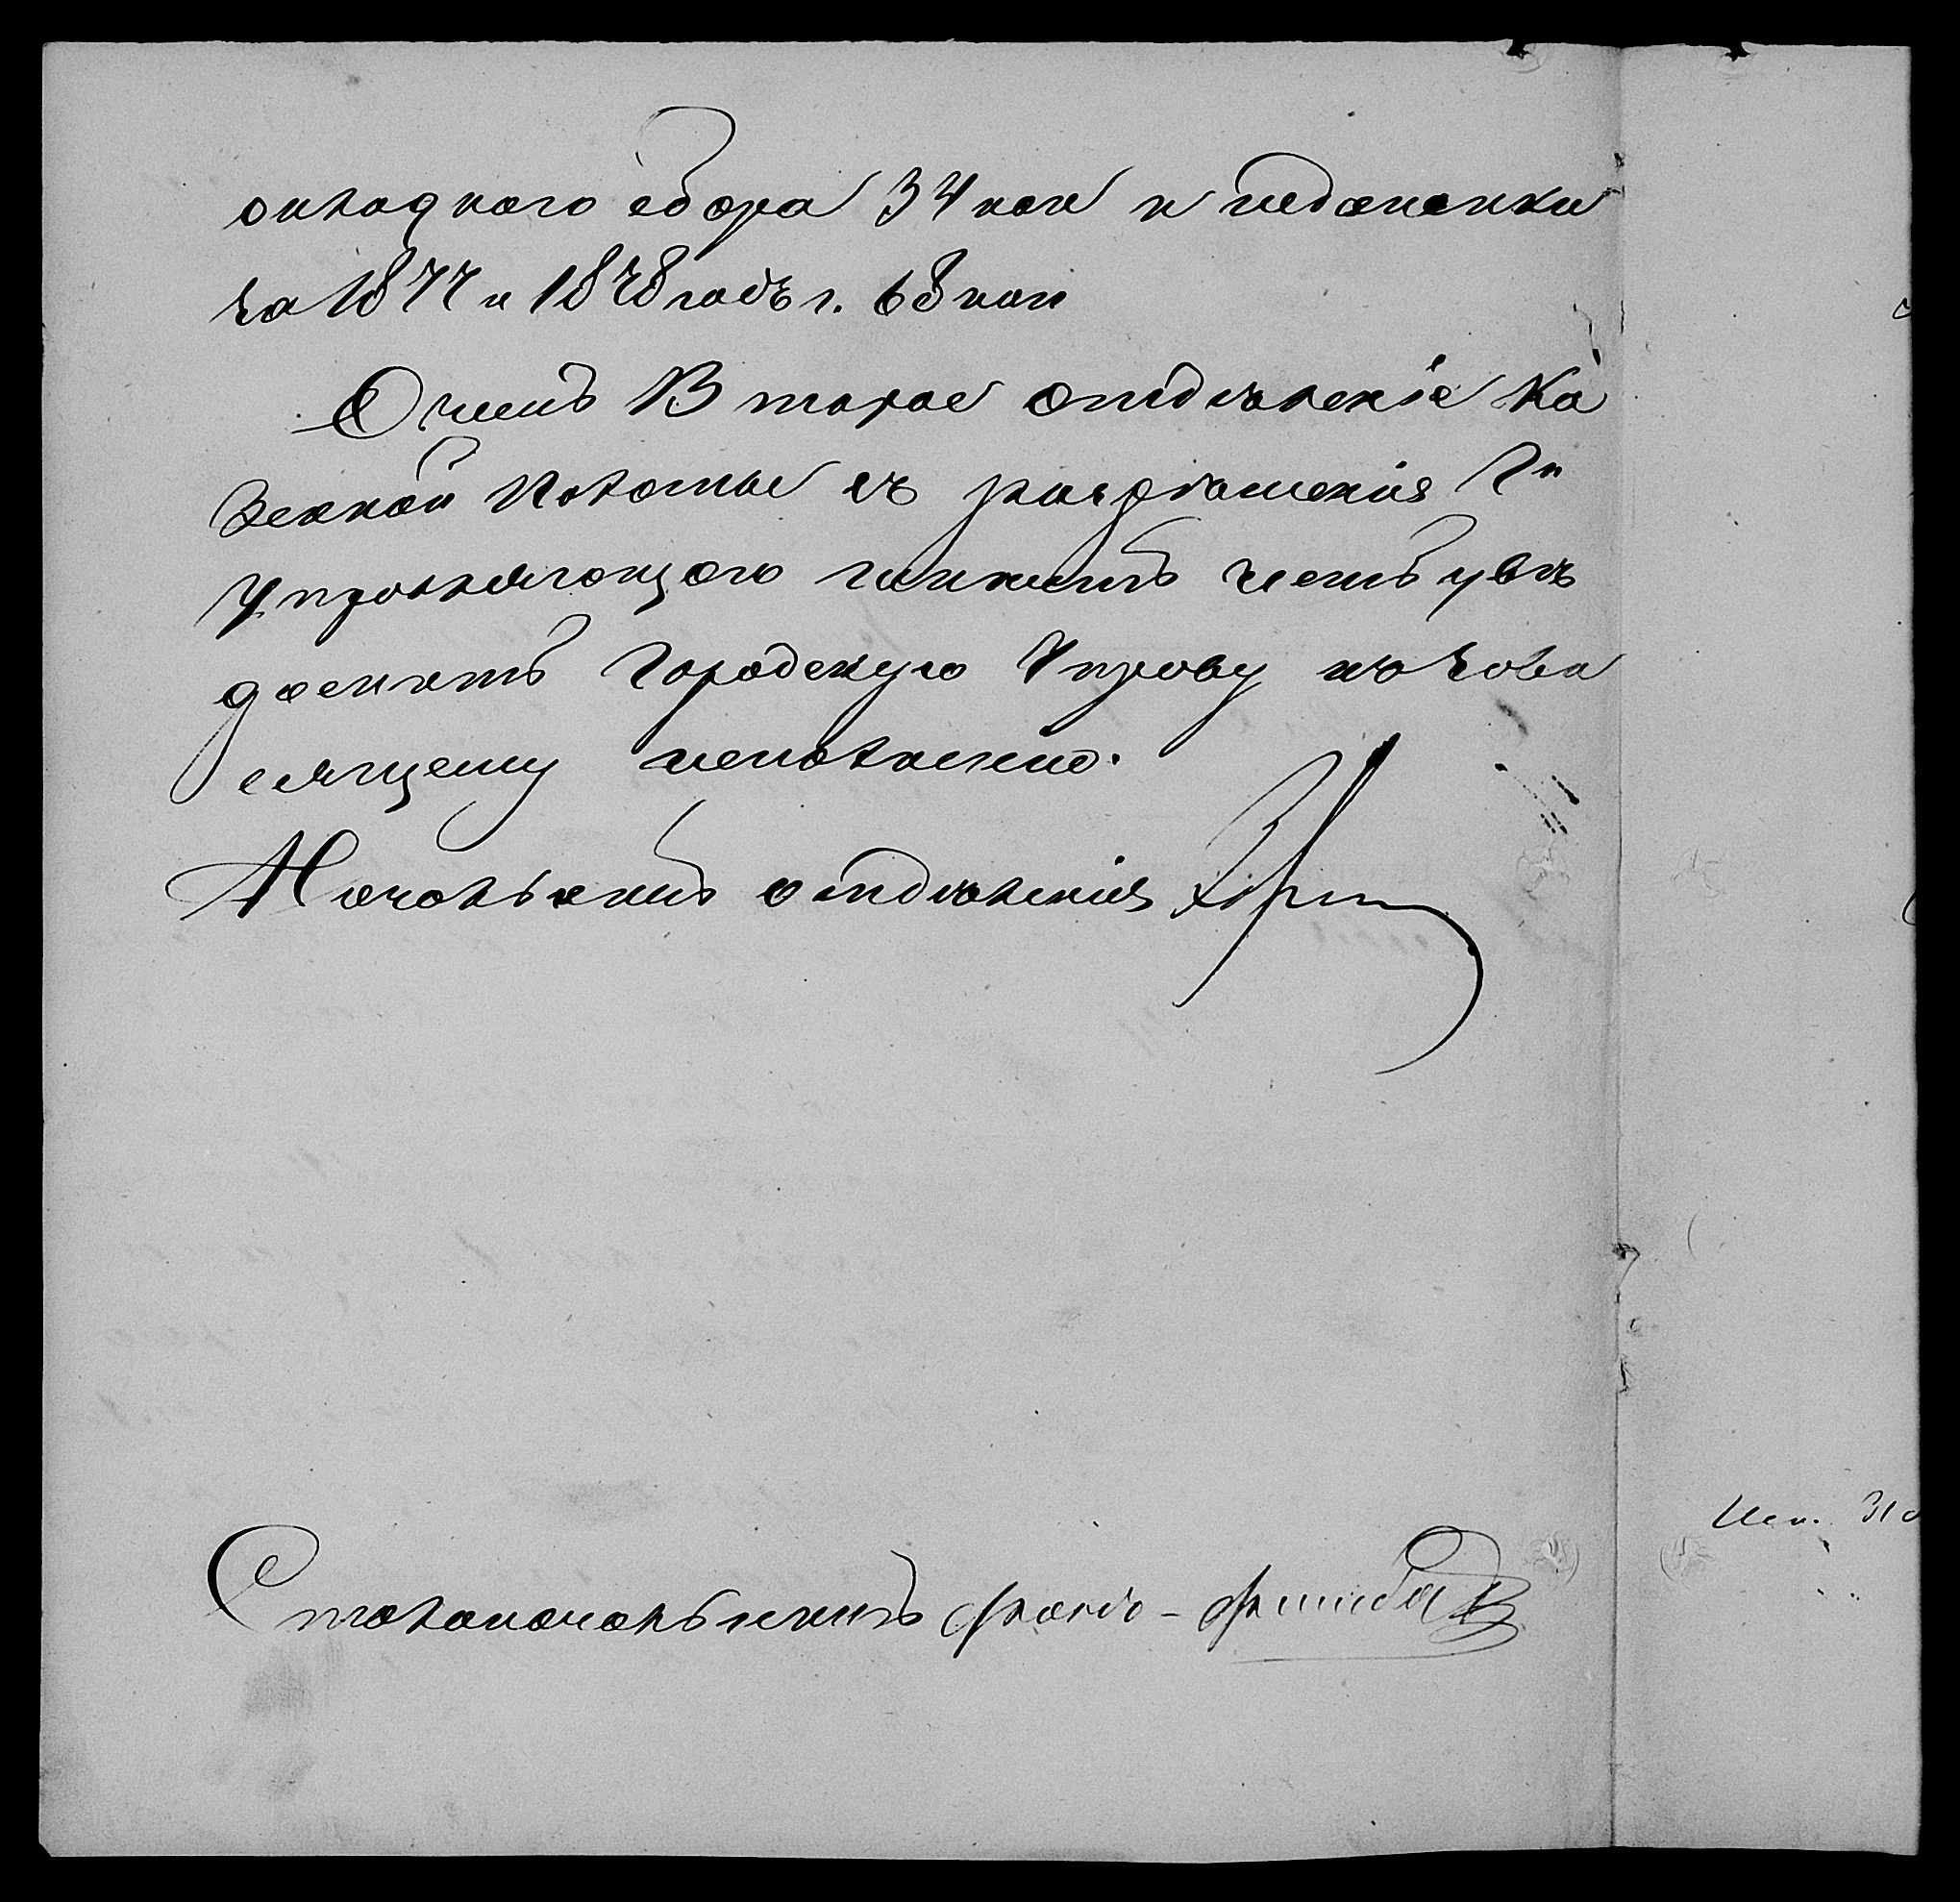 окладного сбора 34 коп и недоимки
за 1877 и 1878 годъ г. 68 коп
О чемъ Второе отдѣленіе Ка
зенной Палаты съ разрѣшенія Гн
Управляющаго имѣетъ честь увѣ
домить Городскую Управу къ зави
сящему исполненію.
Начальникъ отдѣленія
Столоначальникъ
Исп. 31